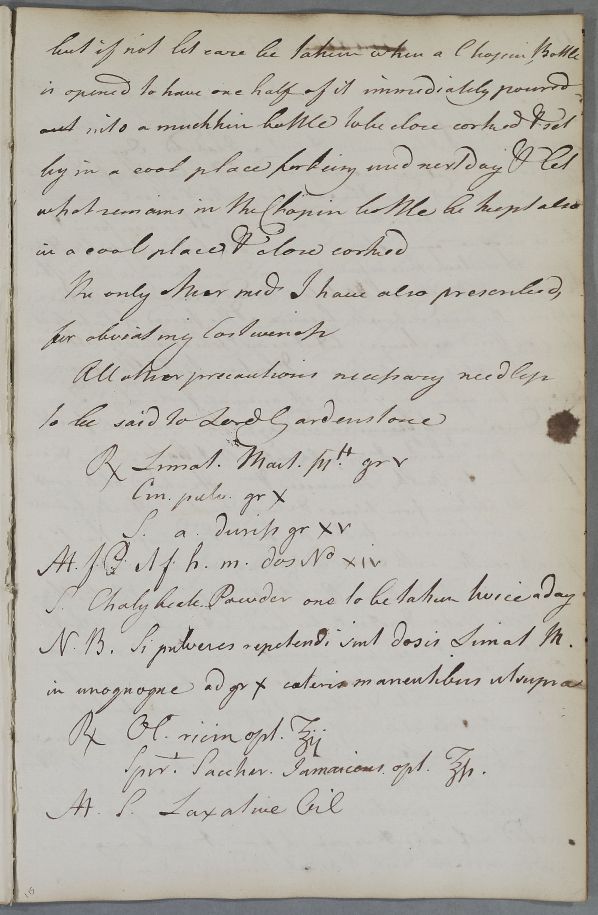 but if not let care be taken when a Chopin Bottle
is opened to have one half of it immediately poured
out into a muchkin bottle to be close corked & set
by in a cool place for being used next day & let
what remains in the Chopin bottle be kept also
in a cool place & close corked
The only other meds I have also prescribed,
for obviating Costiveness
All other precautions necessary needless
to be said to Lord Gardenstone
℞ Limat. Mart. ppt. gr v
Cin. pulv. gr X
S. a. dulciss gr XV
M. f. P. N f. h. m. dos No XIV
S. Chalybeate Powder one to be taken twice a day
N. B. Si pulveres repetendi sint dosis Limat M.
in unoquoque ad gr X caeteris manentibus ut supra
℞ Ol. ricini opt. ℥ij
Spir. Sacchar. Jamaicens. opt. ℥ß.
M. S. Laxative Oil